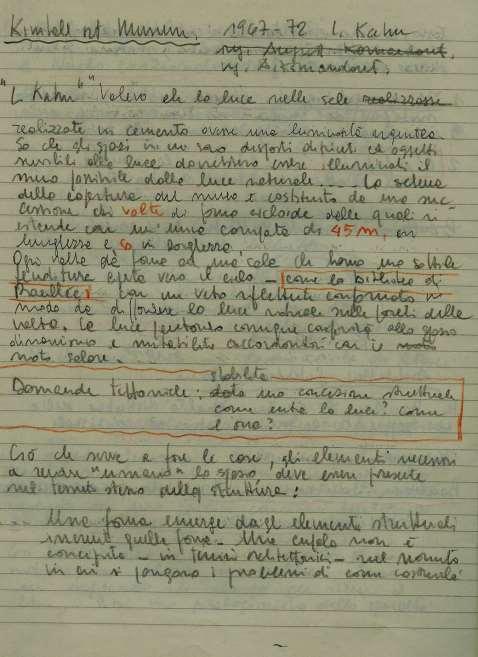 Kimbell Art Museum, 1967-72 L. Kahn
ing. August Komendant,
"L Kahn" "Volevo che la luce nelle sale realizzasse
realizzate in cemento avesse una luminosità argentea
So che gli spazi in cui sono disposti dipinti ed oggetti
sensibili alla luce dovrebbero essere illuminati il
meno possibile dalla luce naturale.... Lo schema
della copertura del museo è costituito da una suc
cessione di volte di forma cicloide delle quali si
estende con un'unica campata di 45 m, in
lunghezza e 60 in larghezza.
Ogni volta dà forma ad una sala che hanno una sottile
fenditura aperta verso il cielo -
con un vetro riflettente conformato in
modo da diffondere la luce naturale sulle pareti della
volta. La luce pertanto comunque conferirà allo spazio
dinamismo e mutabilità accordandosi con il moto
moto solare.
stabilita
Domande tettoniche: data una concezione strutturale
come entra la luce? come
l'aria?
Ciò che serve a fare le cose, gli elementi necessari
a rendere "umano" lo spazio, deve essere presente
nel tessuto stesso della struttura:
... Una forma emerge dagli elementi strutturali
insiti quella forma - Una cupola non è
concepita - in termini architettonici - nel momento
in cui si pongono i problemi di come costruirla